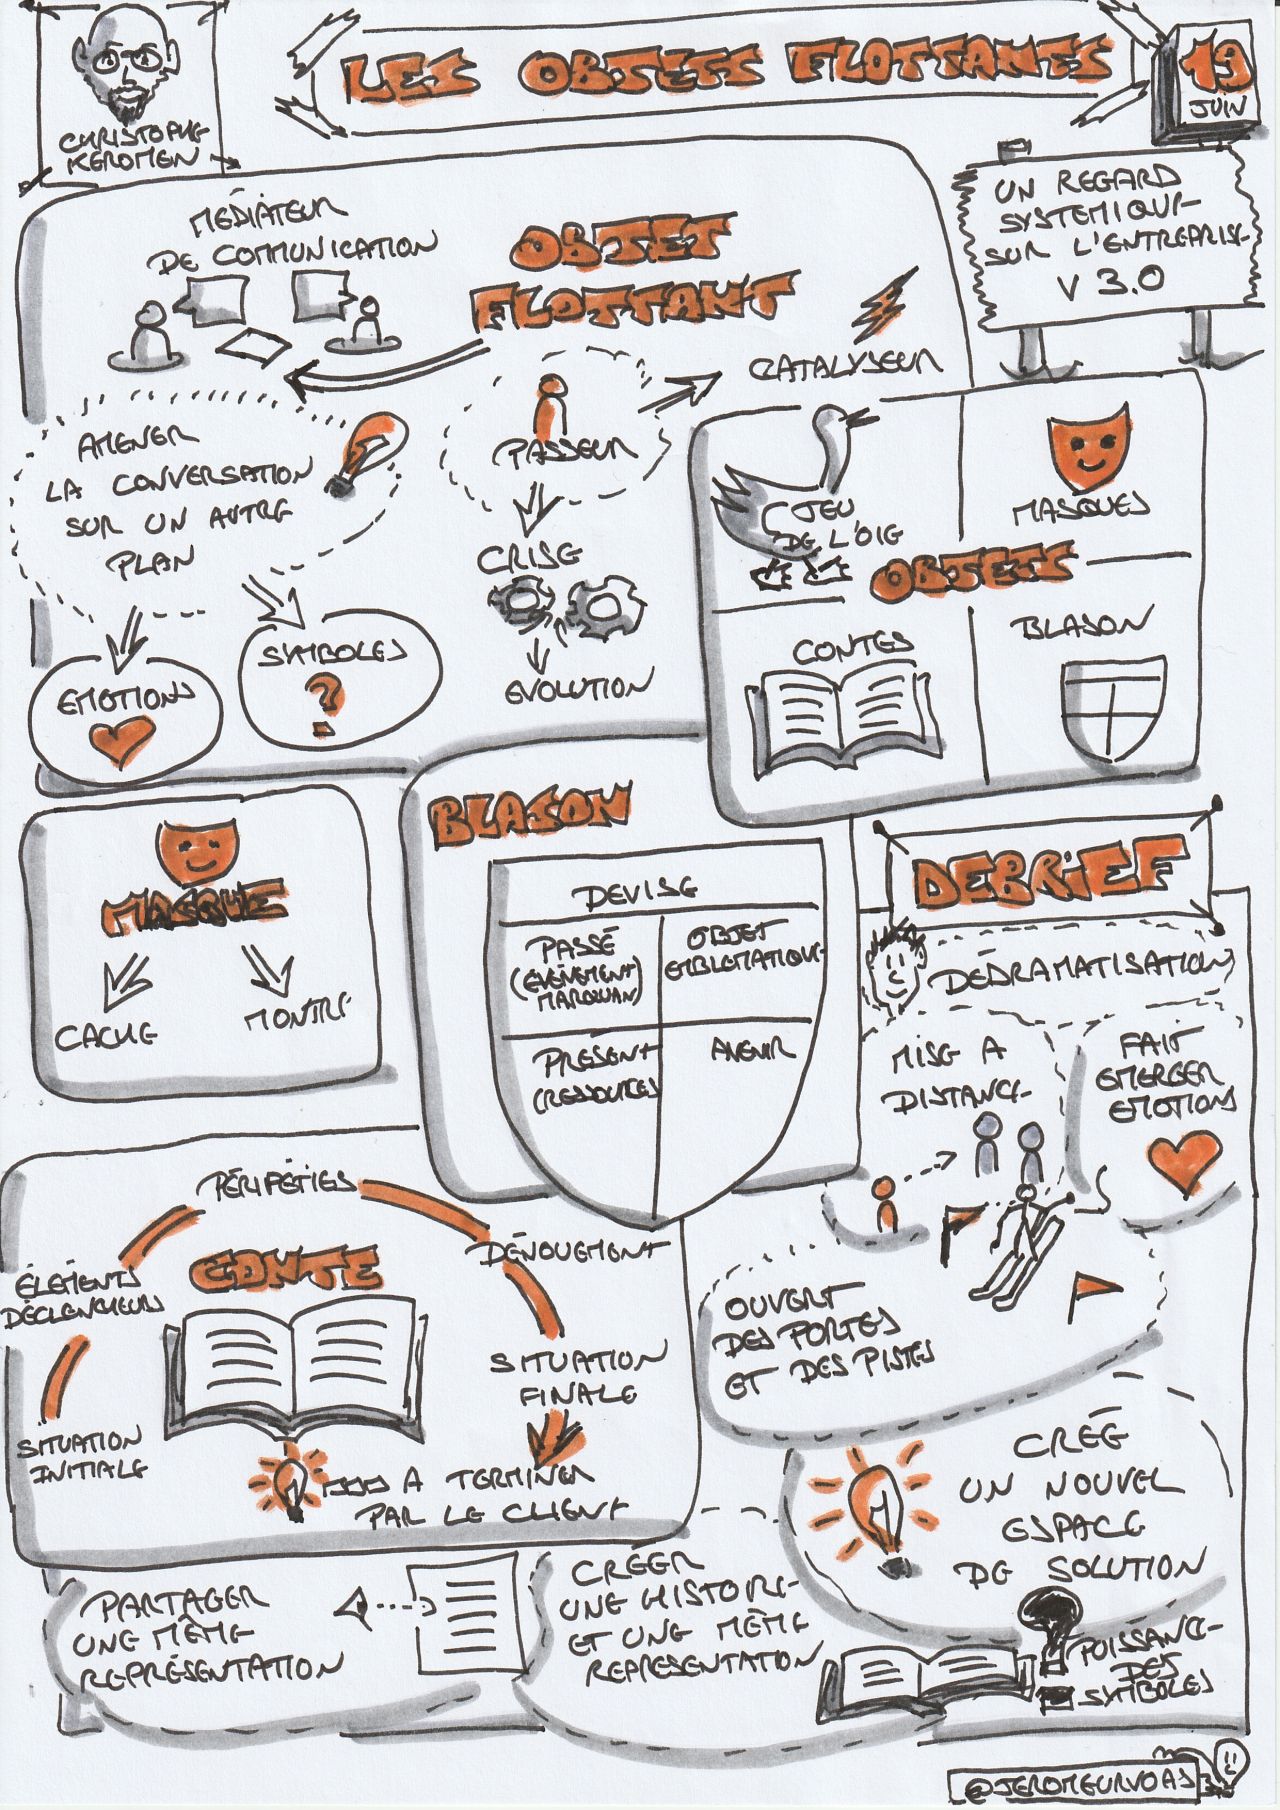 LES OBJETS FLOTTANTS
19
JUIN
CHRISTOPHE
KEROMEN
UN REGARD
SYSTEMIQUE
SUR L'ENTREPRISE
V 3.0
MÉDIATEUR
DE COMMUNICATION
OBJET
FLOTTANT
CATALYSEUR
AMENER
LA CONVERSATION
SUR UN AUTRE
PLAN
PASSEUR
CRISE
EVOLUTION
EMOTIONS
SYMBOLES
?
JEU
DE L'OIE
MASQUES
OBJETS
CONTES
BLASON
MASQUE
CACHE
MONTRE
BLASON
DEVISE
PASSÉ
(ÉVÉNEMENT
MARQUANT)
OBJET
EMBLEMATIQUE
PRÉSENT
(RESSOURCES)
AVENIR
DEBRIEF
DÉDRAMATISATION
MISE A
DISTANCE
FAIT
EMERGER
EMOTIONS
OUVERT
DES PORTES
ET DES PISTES
CRÉÉ
UN NOUVEL
ESPACE
DE SOLUTION
PUISSANCE
DES
SYMBOLES
PÉRIPÉTIES
ÉLÉMENTS
DÉCLENCHEURS
CONTE
DÉNOUEMENT
SITUATION
FINALE
SITUATION
INITIALE
A TERMINER
PAR LE CLIENT
PARTAGER
UNE MÊME
REPRÉSENTATION
CREER
UNE HISTOIRE
ET UNE MÊME
REPRESENTATION
@JEROMEURVOAS